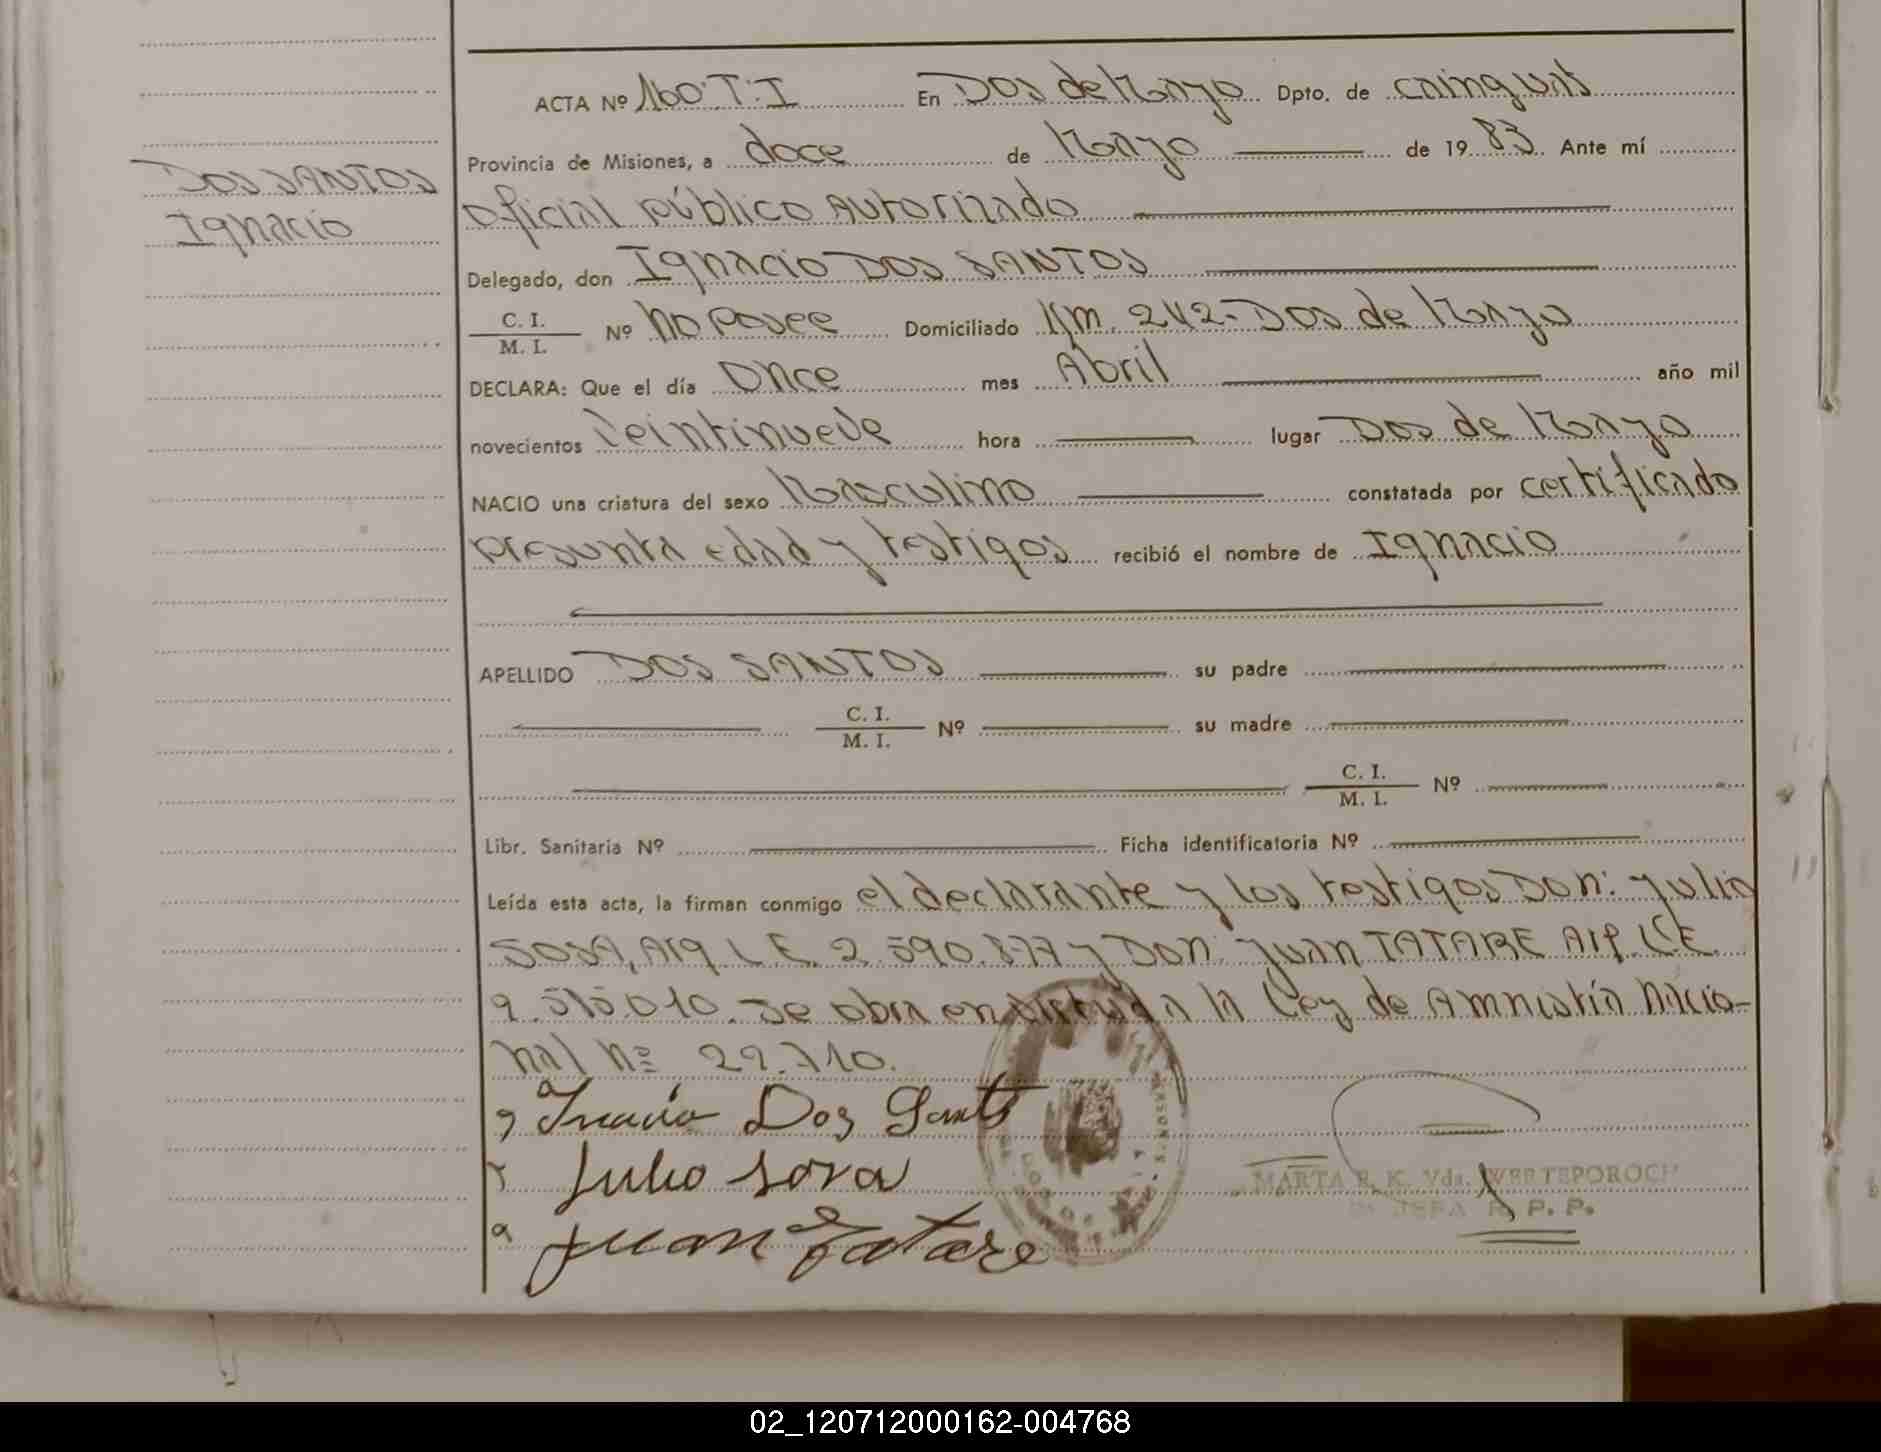 ACTA Nº 160.T.I En Dos de Mayo Dpto. de Cainguas
Provincia de Misiones, a doce de Mayo de 1983. Ante mí
Oficial público Autorizado
DOS SANTOS
Ignacio
Delegado, don Ignacio DOS SANTOS
C. I.
M. I. Nº No posee Domiciliado Km. 242-Dos de Mayo
DECLARA: Que el día Once mes Abril año mil
novecientos Veintinueve hora lugar Dos de Mayo
NACIO una criatura del sexo Masculino constatada por certificado
presunta edad y testigos recibió el nombre de Ignacio
APELLIDO DOS SANTOS su padre
C. I.
M. I. Nº su madre
C. I.
M. I. Nº
Libr. Sanitaria Nº Ficha identificatoria Nº
Leída esta acta, la firman conmigo el declarante y los testigos Don: Julio
SOSA, Arg L.E. 2.590.877 y Don: Juan TATARE Arg. L.E.
9.515.010. Se obra en virtud a la Ley de Amnistía Nacio-
nal Nº 22.710.
Dos Santos
Julio Sosa
Juan Tatare
MARTA R. K. Vda. WERTEPOROCH
JEFA R. P. P.
02_120712000162-004768